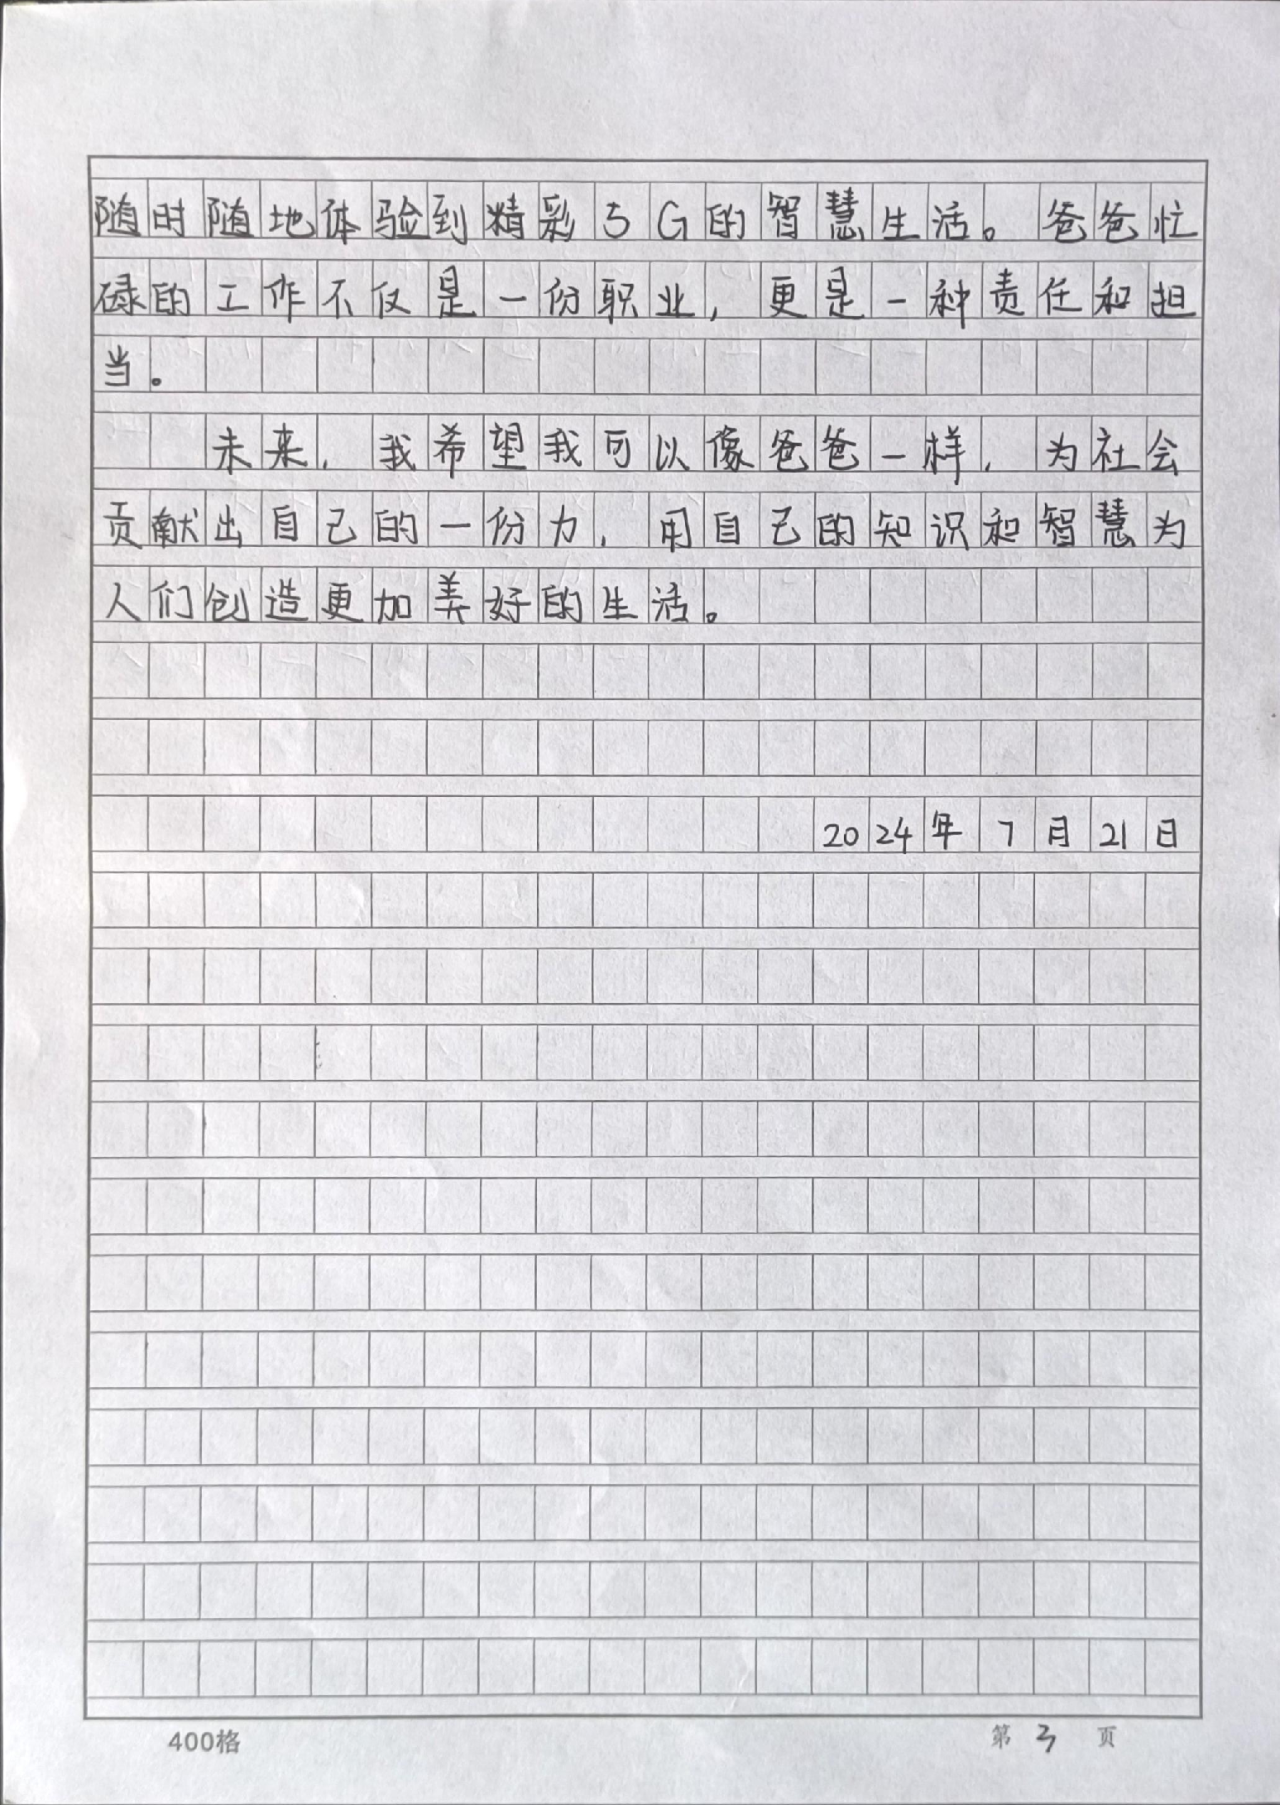 随时随地体验到精彩5G的智慧生活。爸爸忙
碌的工作不仅是一份职业，更是一种责任和担
当。
未来，我希望我可以像爸爸一样，为社会
贡献出自己的一份力，用自己的知识和智慧为
人们创造更加美好的生活。
2024年7月21日
400格
第3页